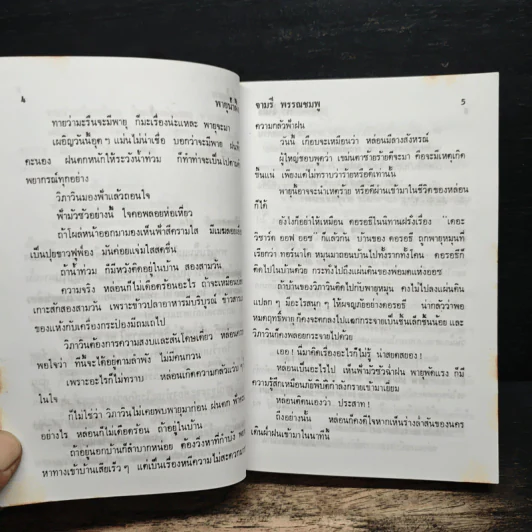 4
พายุน้ำ
ทายว่ามะรืนจะมีพายุ ก็มะเรื่องน่ะแหละ พายุจะมา
เผอิญวันนี้อุตุฯ แม่นไม่น่าเชื่อ บอกว่าจะมีพายุ ฝน
คะนอง ฝนตกหนักให้ระวังน้ำท่วม ก็ทำท่าจะเป็นไปตาม
พยากรณ์ทุกอย่าง
วิภาวันมองฟ้าแล้วถอนใจ
ฟ้ามัวซัวอย่างนี้ ใจคอพลอยห่อเหี่ยว
ถ้าโผล่หน้าออกมามองเห็นฟ้าสีครามใส มีเมฆลอย
เป็นปุยขาวฟูฟ่อง มันค่อยแจ่มใสสดชื่น
ถ้าน้ำท่วม ก็มีหวังติดอยู่ในบ้าน สองสามวัน
ความจริง หล่อนก็ไม่เดือดร้อนอะไร ถ้าจะเหมือน
เกาะสักสองสามวัน เพราะข้าวปลาอาหารมีบริบูรณ์ ข้าวสาร
ของแห้งกับเครื่องกระป๋องมีถมเถไป
วิภาวันต้องการความสงบและสันโดษเดี่ยว หล่อน
พอใจว่า ที่นี้จะได้อยู่ตามลำพัง ไม่มีคนกวน
เพราะอะไรก็ไม่ทราบ หล่อนเกิดความกลัวแวบ
ในใจ
ก็ไม่ใช่ว่า วิภาวันไม่เคยพบพายุมาก่อน ฝนตก ฟ้า
อย่างไร หล่อนก็ไม่เดือดร้อน ถ้าอยู่ในบ้าน
ถ้าอยู่นอกบ้านก็ลำบากหน่อย ต้องวิ่งหาที่กำบัง
หาทางเข้าบ้านเสียเร็วๆ แต่เป็นเรื่องหนีความไม่สะดวก
จามรี พรรณชมพู
5
ความกลัวฟ้าฝน
วันนี้ เกือบจะเหมือนว่า หล่อนมีลางสังหรณ์
ผู้ใหญ่ชอบพูดว่า เขม่นตาซ้ายร้ายดีจะมา คือจะมีเหตุเกิด
ขึ้นแน่ เพียงแต่ไม่ทราบว่าร้ายหรือดีเท่านั้น
พายุนี้อาจจะนำเหตุร้าย หรือดีผ่านเข้ามาในชีวิตของหล่อน
ก็ได้
ยังไงก็อย่าให้เหมือน ดอรอธีในนิทานฝรั่งเรื่อง "เดอะ
วิซาร์ด ออฟ ออซ" ก็แล้วกัน บ้านของ ดอรอธี ถูกพายุหมุนที่
เรียกว่า ทอร์นาโด หมุนมาถอนบ้านไปทั้งรากทั้งโคน ดอรอธีก็
ติดไปในบ้านด้วย กระทั่งไปถึงแผ่นดินของพ่อมดแห่งออซ
ถ้าบ้านของวิภาวันติดไปกับพายุหมุน คงไม่ไปลงแผ่นดิน
แปลก ๆ มีอะไรสนุก ๆ ให้ผจญภัยอย่างดอรอธี น่ากลัวว่าพอ
หมดฤทธิ์พายุ ก็คงจะตกลงไปแตกกระจายเป็นชิ้นเล็กชิ้นน้อย และ
วิภาวันก็คงพลอยกระจายไปด้วย
เออ! นี่มาคิดเรื่องอะไรก็ไม่รู้ น่าสยดสยอง!
หล่อนเป็นอะไรไป เห็นฟ้ามัวซัวมีฝน พายุพัดแรง ก็มี
ความรู้สึกเหมือนภัยพิบัติกำลังกรายเข้ามาเยี่ยม
หล่อนติดนเองว่า ประสาท!
ถึงอย่างนั้น หล่อนก็คงดีใจถ้าหากเห็นร่างล่ำสันของนคร
เดินฝ่าฝนเข้ามาในนาทีนี้